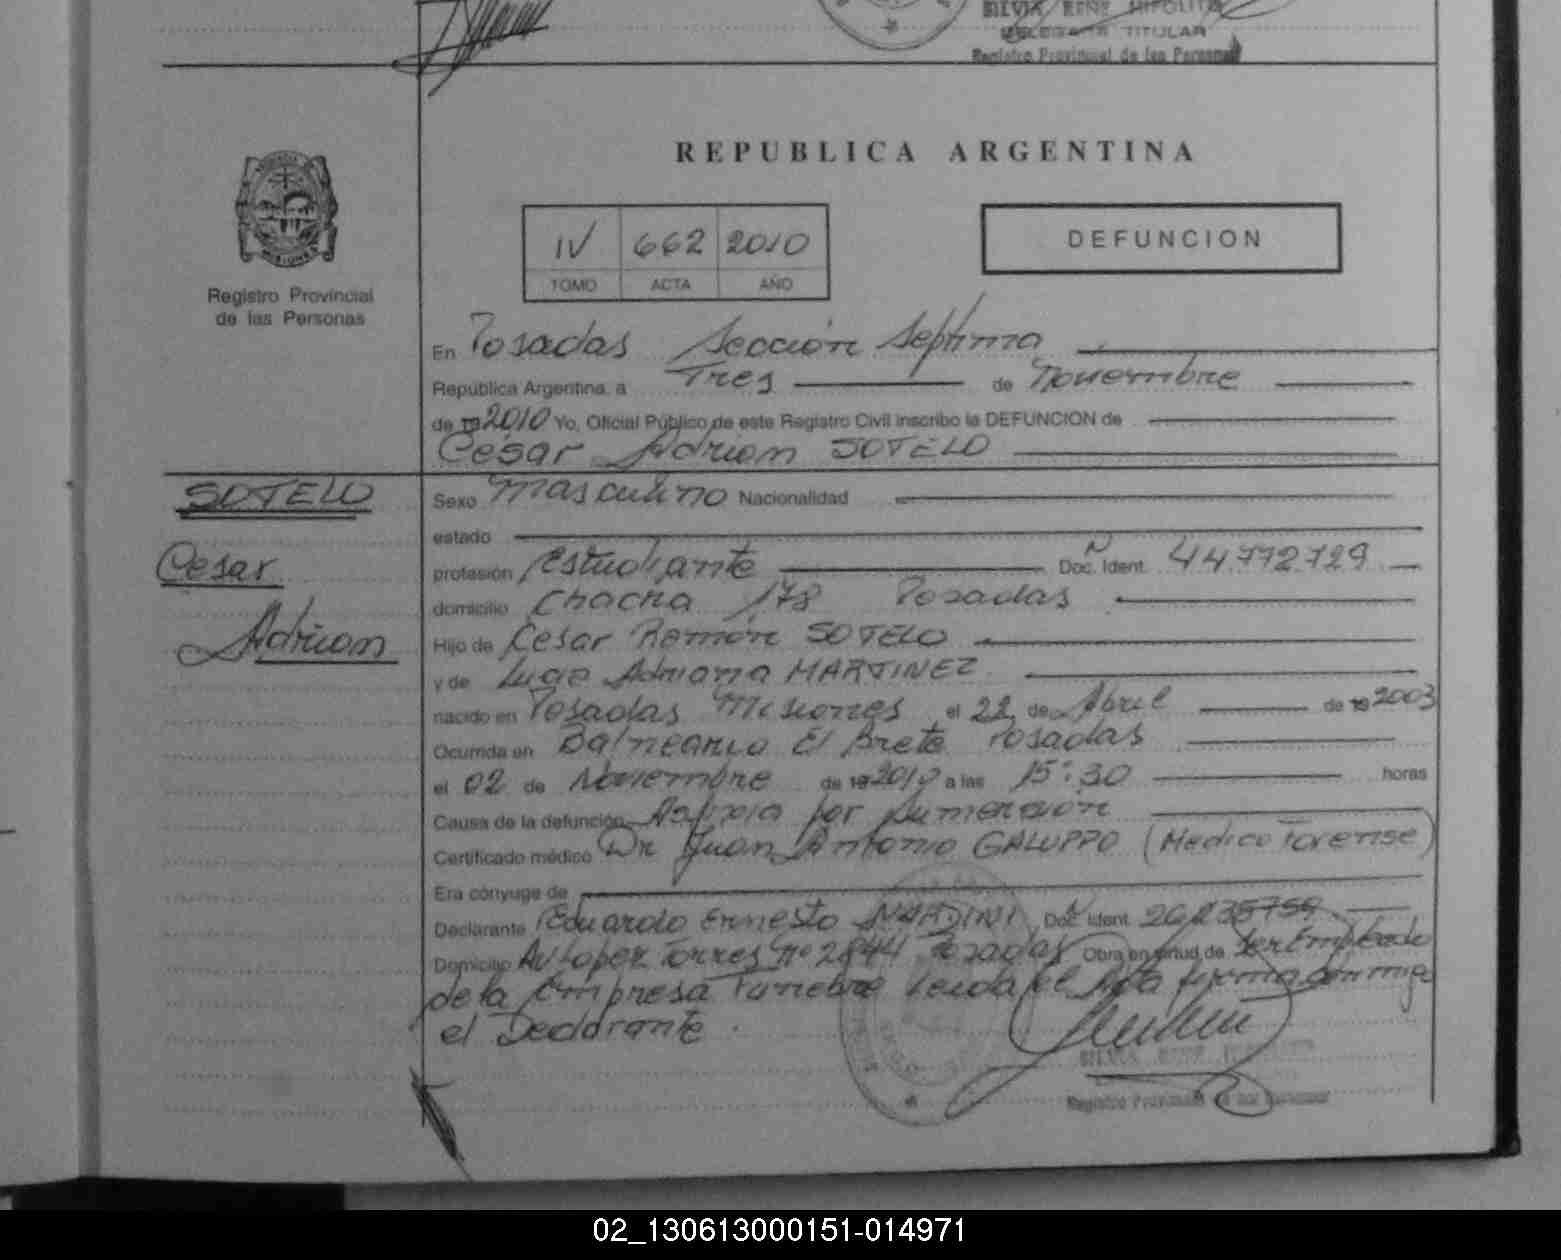 SILVIA RENE HIPOLITO
DELEGADA TITULAR
Registro Provincial de las Personas
REPUBLICA ARGENTINA
IV 662 2010
TOMO ACTA AÑO
DEFUNCION
MISIONES
Registro Provincial
de las Personas
En Posadas Sección Septima
República Argentina, a Tres de Noviembre
de 19 2010 Yo, Oficial Público de este Registro Civil inscribo la DEFUNCION de
César Adrian SOTELO
SOTELO
Cesar
Adrian
Sexo Masculino Nacionalidad
estado
profesión Estudiante Doc. Ident. 44.772.729
domicilio Chacra 178 Posadas
Hijo de Cesar Ramón SOTELO
y de Adriana MARTINEZ
nacido en Posadas Misiones el 22 de Abril de 19 2003
Ocurrida en Balneario El Brete Posadas
el 02 de Noviembre de 19 2010 a las 15:30 horas
Causa de la defunción Asfixia por sumersión
Certificado médico Dr Juan Antonio GALUPPO (Medico Forense)
Era cónyuge de
Declarante Eduardo Ernesto NARDINI Doc. Ident. 26.235759
Domicilio Av Lopez Torres nº 2844 Posadas Obra en virtud de ser Empleado
de la Empresa Funebre Leida el Acta firma conmigo
el Declarante.
SILVIA RENE HIPOLITO
Registro Provincial de las Personas
02_130613000151-014971